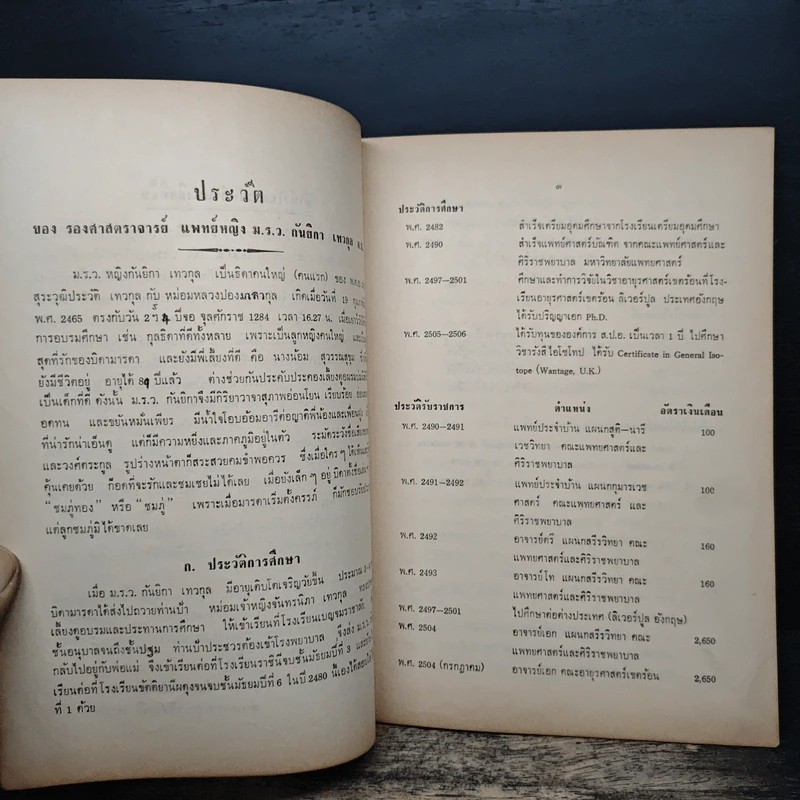 ประวัติ
ของ รองศาสตราจารย์ แพทย์หญิง ม.ร.ว. กันยิกา เทวกุล
ม.ร.ว. หญิงกันยิกา เทวกุล เป็นธิดาคนใหญ่ (คนแรก) ของ
สุระวุฒิประวัติ เทวกุล กับ หม่อมหลวงปอง เทวกุล เกิดเมื่อวันที่ 19
พ.ศ. 2465 ตรงกับวัน ปีจอ จุลศักราช 1284 เวลา 16.27 น.
การอบรมศึกษา เช่น กุลธิดาที่ดีทั้งหลาย เพราะเป็นลูกหญิงคนใหญ่
สุดที่รักของบิดามารดา และยังมีพี่เลี้ยงที่ดี คือ นางน้อม สุวรรณสุขุม
ยังมีชีวิตอยู่ อายุได้ ปีแล้ว ต่างช่วยกันประคับประคองเลี้ยงดู
เป็นเด็กที่ดี ดังนั้น ม.ร.ว. กันยิกาจึงมีกิริยาวาจาสุภาพอ่อนโยน เรียบร้อย
อดทน และขยันหมั่นเพียร มีน้ำใจโอบอ้อมอารีต่อญาติพี่น้องและเพื่อนฝูง
ที่น่ารักน่าเอ็นดู แต่ก็มีความหยิ่งและภาคภูมิอยู่ในตัว
และวงศ์ตระกูล รูปร่างหน้าตาก็สระสวยคมขำพอควร ซึ่งเมื่อใครๆ ได้เห็น
คุ้นเคยด้วย ก็อดที่จะรักและชมเชยไม่ได้เลย เมื่อยังเล็กๆ อยู่ บิดาตั้งชื่อ
“ชมภู่ทอง” หรือ “ชมภู่” เพราะเมื่อมารดาเริ่มตั้งครรภ์ ก็มักชอบรับประทาน
แต่ลูกชมภู่มิได้ขาดเลย
ก. ประวัติการศึกษา
เมื่อ ม.ร.ว. กันยิกา เทวกุล มีอายุเติบโตเจริญวัยขึ้น ประมาณ
บิดามารดาได้ส่งไปถวายท่านป้า หม่อมเจ้าหญิงจันทรนิภา เทวกุล
เลี้ยงดูอบรมและประทานการศึกษา ให้เข้าเรียนที่โรงเรียนเบญจมราชาลัย
ชั้นอนุบาลจนถึงชั้นปฐม ท่านป้าประชวรต้องเข้าโรงพยาบาล จึงส่ง ม.ร.ว.
กลับไปอยู่กับพ่อแม่ จึงเข้าเรียนต่อที่โรงเรียนราชินีจบชั้นมัธยมปีที่ 3
เรียนต่อที่โรงเรียนขัตติยานีผดุงจนจบชั้นมัธยมปีที่ 6 ในปี 2480
ที่ 1 ด้วย
๓
ประวัติการศึกษา
พ.ศ. 2482 สำเร็จเตรียมอุดมศึกษาจากโรงเรียนเตรียมอุดมศึกษา
พ.ศ. 2490 สำเร็จแพทย์ศาสตร์บัณฑิต จากคณะแพทย์ศาสตร์และ
ศิริราชพยาบาล มหาวิทยาลัยแพทยศาสตร์
พ.ศ. 2497-2501 ศึกษาและทำการวิจัยในวิชาอายุรศาสตร์เขตร้อนที่โรง-
เรียนอายุรศาสตร์เขตร้อน ลิเวอร์ปูล ประเทศอังกฤษ
ได้รับปริญญาเอก Ph.D.
พ.ศ. 2505-2506 ได้รับทุนขององค์การ ส.ป.อ. เป็นเวลา 1 ปี ไปศึกษา
วิชารังสีไอโซโทป ได้รับ Certificate in General Iso-
tope (Wantage, U.K.)
ประวัติรับราชการ ตำแหน่ง อัตราเงินเดือน
พ.ศ. 2490-2491 แพทย์ประจำบ้าน แผนกสูติ-นารี
เวชวิทยา คณะแพทยศาสตร์และ 100
ศิริราชพยาบาล
พ.ศ. 2491-2492 แพทย์ประจำบ้าน แผนกกุมารเวช
ศาสตร์ คณะแพทยศาสตร์ และ 100
ศิริราชพยาบาล
พ.ศ. 2492 อาจารย์ตรี แผนกสรีรวิทยา คณะ
แพทยศาสตร์และศิริราชพยาบาล 160
พ.ศ. 2493 อาจารย์โท แผนกสรีรวิทยา คณะ
แพทยศาสตร์และศิริราชพยาบาล 160
พ.ศ. 2497-2501 ไปศึกษาต่อต่างประเทศ (ลิเวอร์ปูล อังกฤษ)
พ.ศ. 2504 อาจารย์เอก แผนกสรีรวิทยา คณะ 2,650
แพทยศาสตร์และศิริราชพยาบาล
พ.ศ. 2504 (กรกฎาคม) อาจารย์เอก คณะอายุรศาสตร์เขตร้อน 2,650